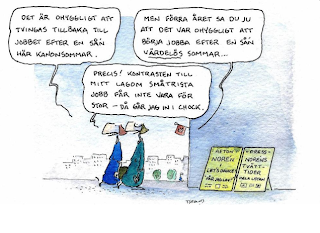 DET ÄR OHYGGLIGT ATT
TVINGAS TILLBAKA TILL
JOBBET EFTER EN SÅN
HÄR KANONSOMMAR.
MEN FÖRRA ÅRET SA DU JU
ATT DET VAR OHYGGLIGT ATT
BÖRJA JOBBA EFTER EN SÅN
VÄRDELÖS SOMMAR...
PRECIS! KONTRASTEN TILL
MITT LAGOM SMÅTRISTA
JOBB FÅR INTE VARA FÖR
STOR – DÅ GÅR JAG IN I CHOCK.
NORÉN
LET'S DANCE
NORÉNS
TVÄTT-
TIDER